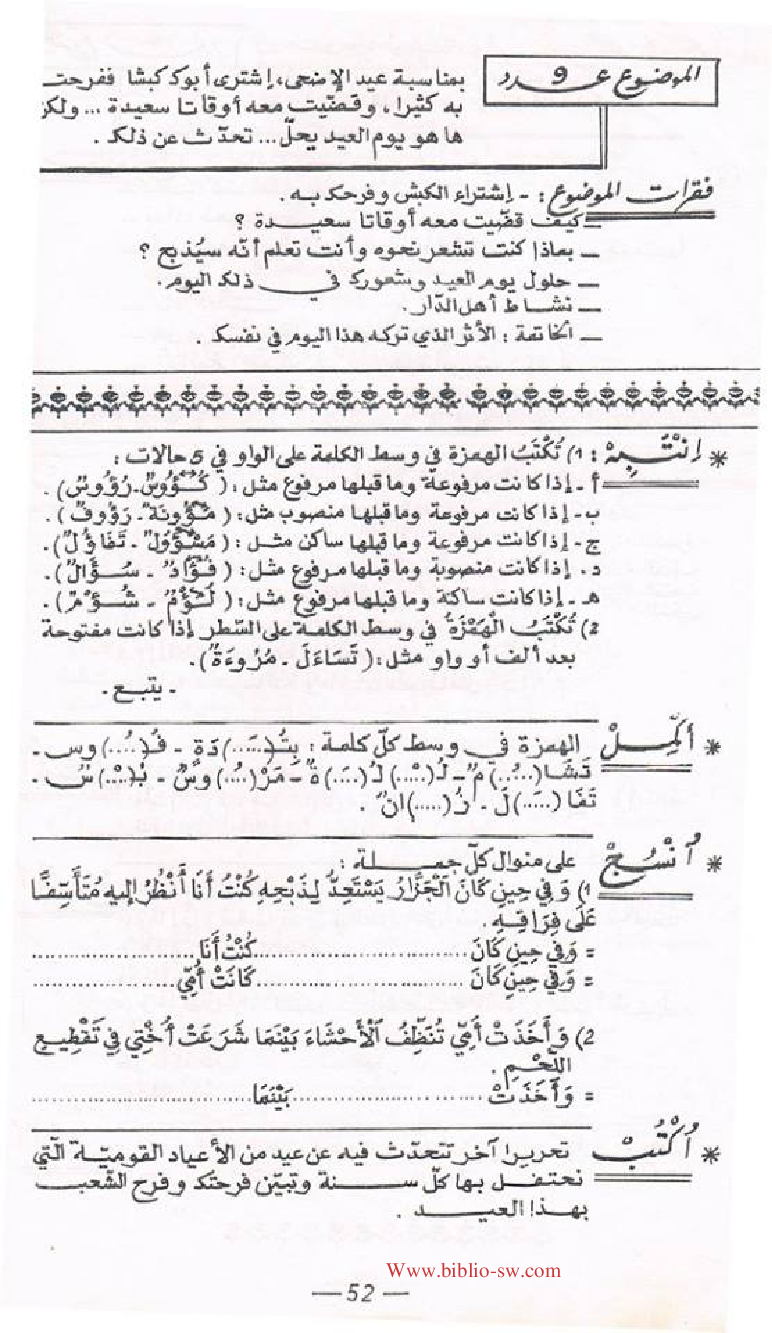 الموضوع عـدد 9
بمناسبة عيد الإضحى، إشترى أبوك كبشا ففرحت
به كثيرا، وقضّيت معه أوقاتا سعيدة ... ولكن
ها هو يوم العيد يحلّ... تحدّث عن ذلك.
فقرات الموضوع: - إشتراء الكبش وفرحك به.
ــ كيف قضّيت معه أوقاتا سعيـدة ؟
ــ بماذا كنت تشعر نحوه وأنت تعلم أنّه سيُذبح ؟
ــ حلول يوم العيد وشعورك في ذلك اليوم.
ــ نشـاط أهل الدّار.
ــ الخاتمة : الأثر الذي تركه هذا اليوم في نفسك .
* اِنْتَـبِـهْ : 1) تُكْتَبُ الهمزة في وسط الكلمة على الواو في 5 حالات :
أ - إذا كانت مرفوعة وما قبلها مرفوع مثل : ( كُـؤُوسٌ - رُؤُوسٌ ) .
ب - إذا كانت مرفوعة وما قبلها منصوب مثل: ( مَـؤُونَةٌ - رَؤُوفٌ ) .
ج - إذا كانت مرفوعة وما قبلها ساكن مثـل : ( مَسْؤُولٌ - تَفَاؤُلٌ ).
د . إذا كانت منصوبة وما قبلها مرفوع مثل: ( فُـؤَادٌ - سُـؤَالٌ ).
هـ - إذا كانت ساكنة وما قبلها مرفوع مثل: ( لُـؤْمٌ - شُـؤْمٌ ) .
2) تُكْتَبُ الْهَمْزَةُ في وسط الكلمة على السّطر إذا كانت مفتوحة
بعد ألف أو واو مثل : ( تَسَاءَلَ - مُرُوءَةٌ ).
- يتبع .
* أَكْمِـلْ الهمزة في وسط كلّ كلمة : بِتُـ(.....)دَةٍ - فُـ(....)وس -
تَشَا(.....)مٌ - لُـ(....)لُـ(.....)ةٌ - مَرْ(.....)وسٌ - بُـ(....)سٌ -
تَفَا(.....)لَ - ذُ(.....)انٌ .
* اُنْسُـجْ على منوال كلّ جمـلـة :
1) وَفِي حِينِ كَانَ الْجَزَّارُ يَسْتَعِدُّ لِذَبْحِهِ كُنْتُ أَنَا أَنْظُرُ إليه مُتَأَسِّفًا
عَلَى فِرَاقِـهِ .
= وَفِي حِينِ كَانَ .................................. كُنْتُ أَنَا ............................
= وَفِي حِينِ كَانَ .................................. كَانَتْ أُمِّي ........................
2) وَأَخَذَتْ أُمِّي تُنَظِّفُ الْأَحْشَاءَ بَيْنَمَا شَرَعَتْ أُخْتِي فِي تَقْطِيعِ
اللَّحْمِ .
= وَأَخَذَتْ .................................. بَيْنَمَا ..................................
* اُكْتُبْ تحريرا آخر تتحدّث فيه عن عيد من الأعياد القوميّـة الّتي
نحتفـل بها كلّ سـنة وتبيّن فرحتك وفرح الشّعب
بهذا العيـد .
Www.biblio-sw.com
— 52 —